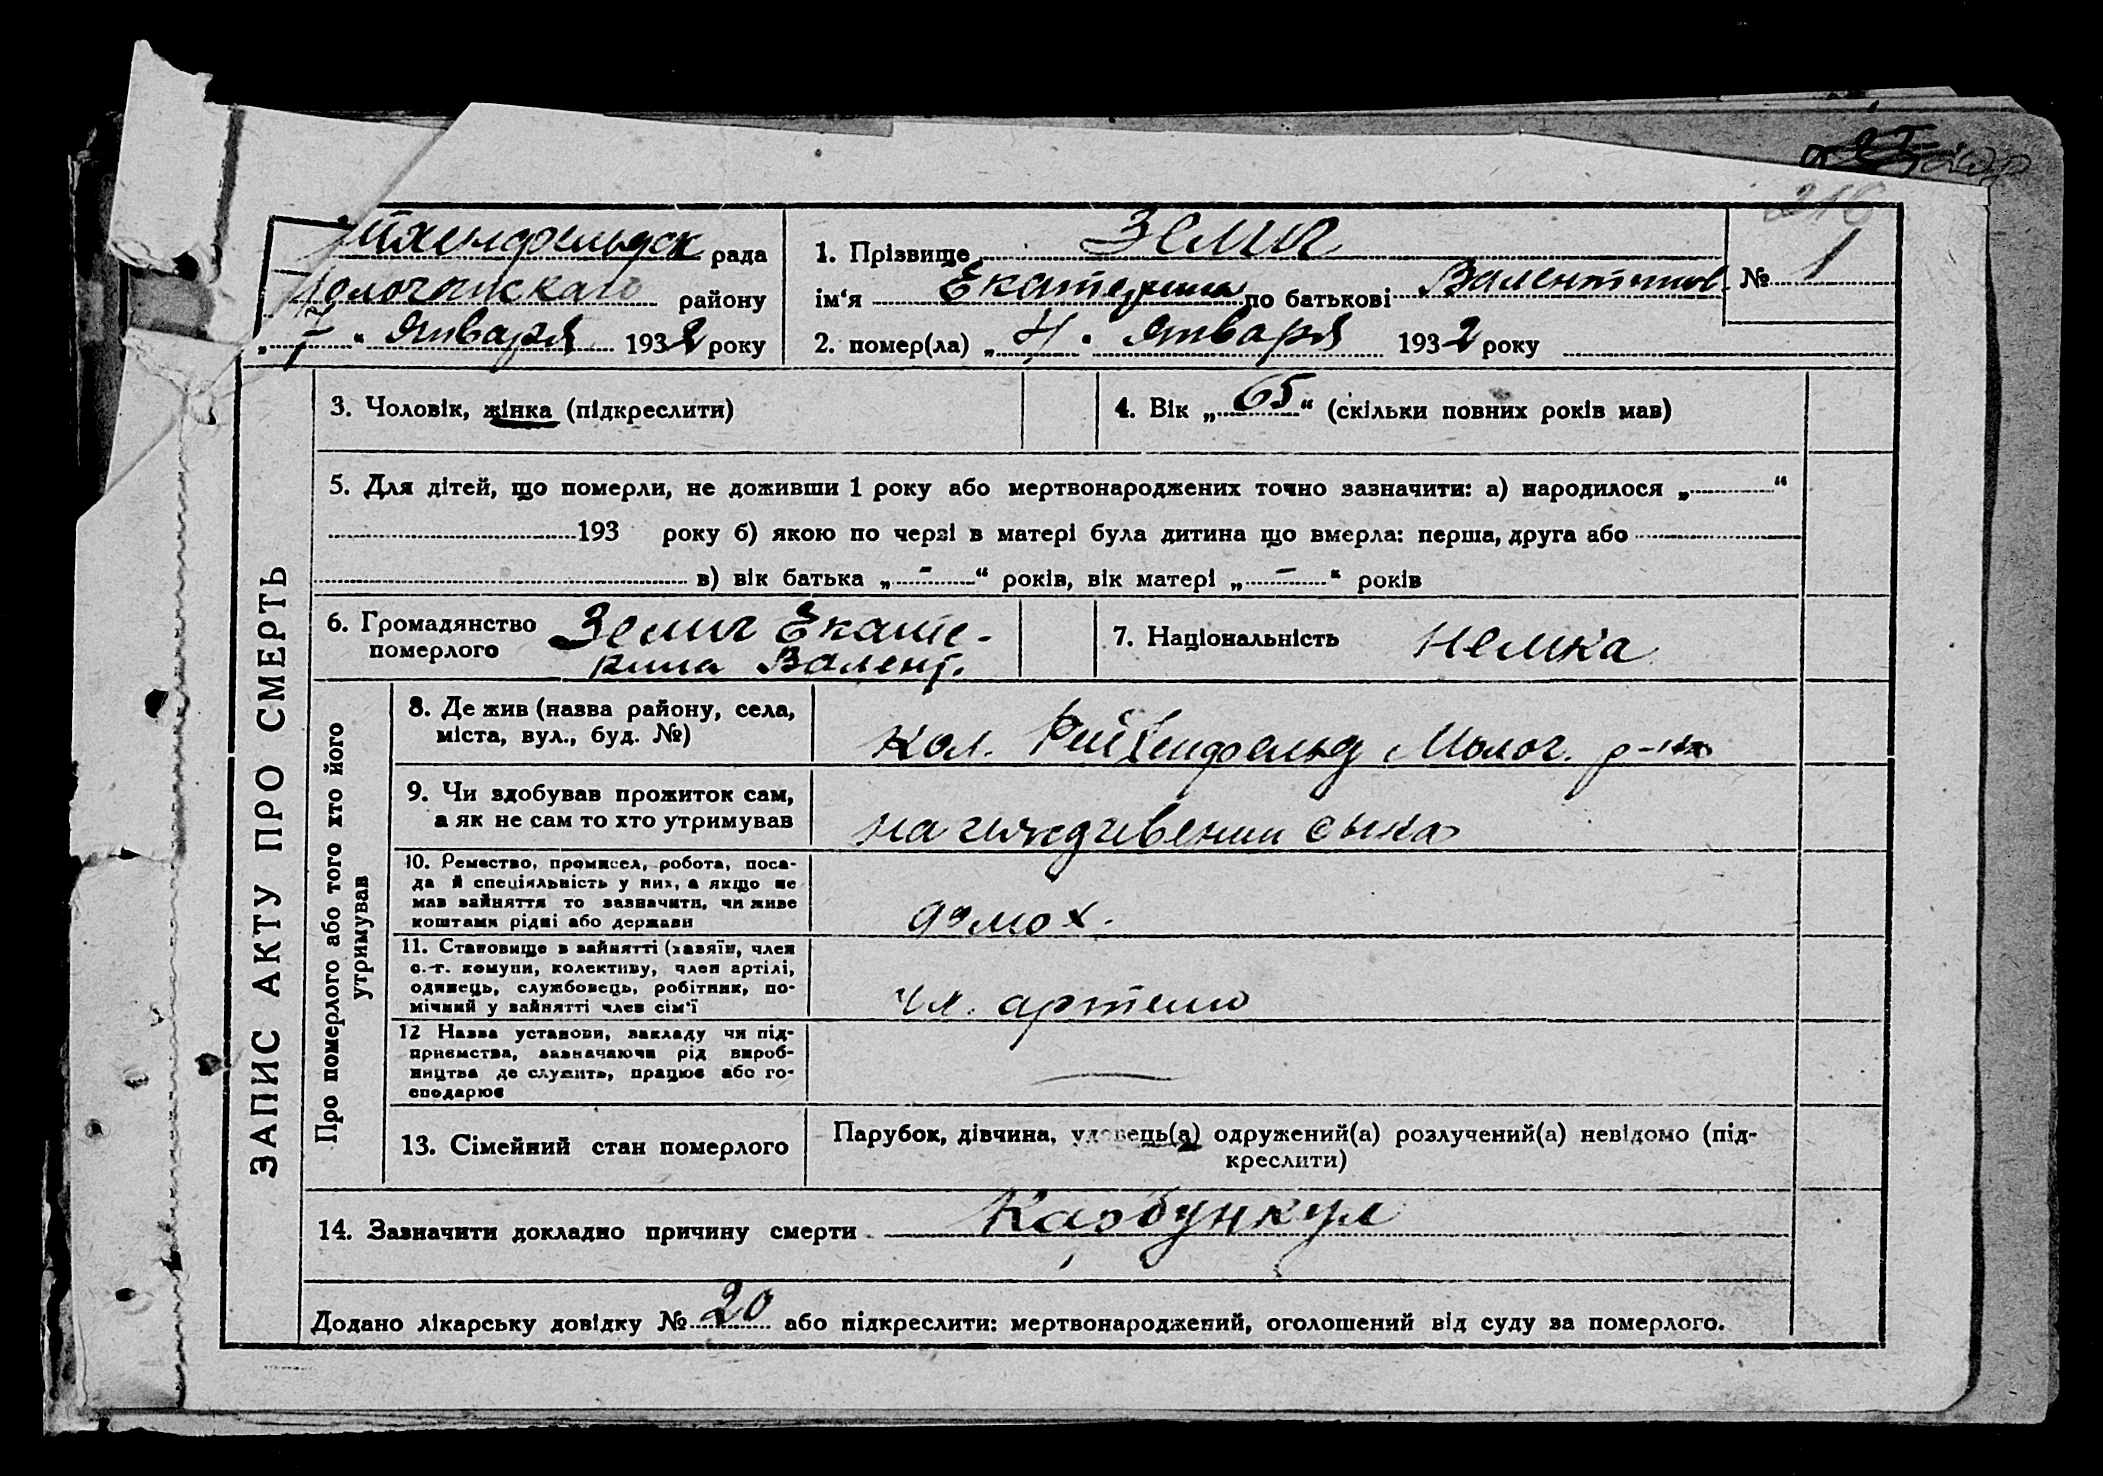 рада
Молочанскаго району
„7“ января 1932 року
1. Прізвище
ім‘я Екатерина по батькові Валентинов.
2. помер(ла) „4“ января 1932 року
№ 1
216
3. Чоловік, жінка (підкреслити)
4. Вік „65“ (скільки повних років мав)
5. Для дітей, що померли, не доживши 1 року або мертвонароджених точно зазначити: а) народилося „ “
193 року б) якою по черзі в матері була дитина що вмерла: перша, друга або
в) вік батька „-“ років, вік матері „-“ років
6. Громадянство
померлого
Екате-
рина Валент.
7. Національність немка
ЗАПИС АКТУ ПРО СМЕРТЬ
Про померлого або того хто його
утримував
8. Де жив (назва району, села,
міста, вул., буд. №)
кол. Рейхенфельд Молоч. р-на
9. Чи здобував прожиток сам,
а як не сам то хто утримував
на иждивении сына
10. Ремество, промисел, робота, поса-
да й спеціяльність у них, а якщо не
мав зайняття то зазначити, чи живе
коштами рідні або держави
домох.
11. Становище в зайнятті (хазяїн, член
с.-г. комуни, колективу, член артілі,
одинець, службовець, робітник, по-
мічний у зайнятті член сім'ї
чл. артели
12 Назва установи, закладу чи під-
приємства, зазначаючи рід вироб-
ництва де служить, працює або го-
сподарює
13. Сімейний стан померлого
Парубок, дівчина, удовець(а) одружений(а) розлучений(а) невідомо (під-
креслити)
14. Зазначити докладно причину смерти Карбункул
Додано лікарську довідку № 20 або підкреслити: мертвонароджений, оголошений від суду за померлого.